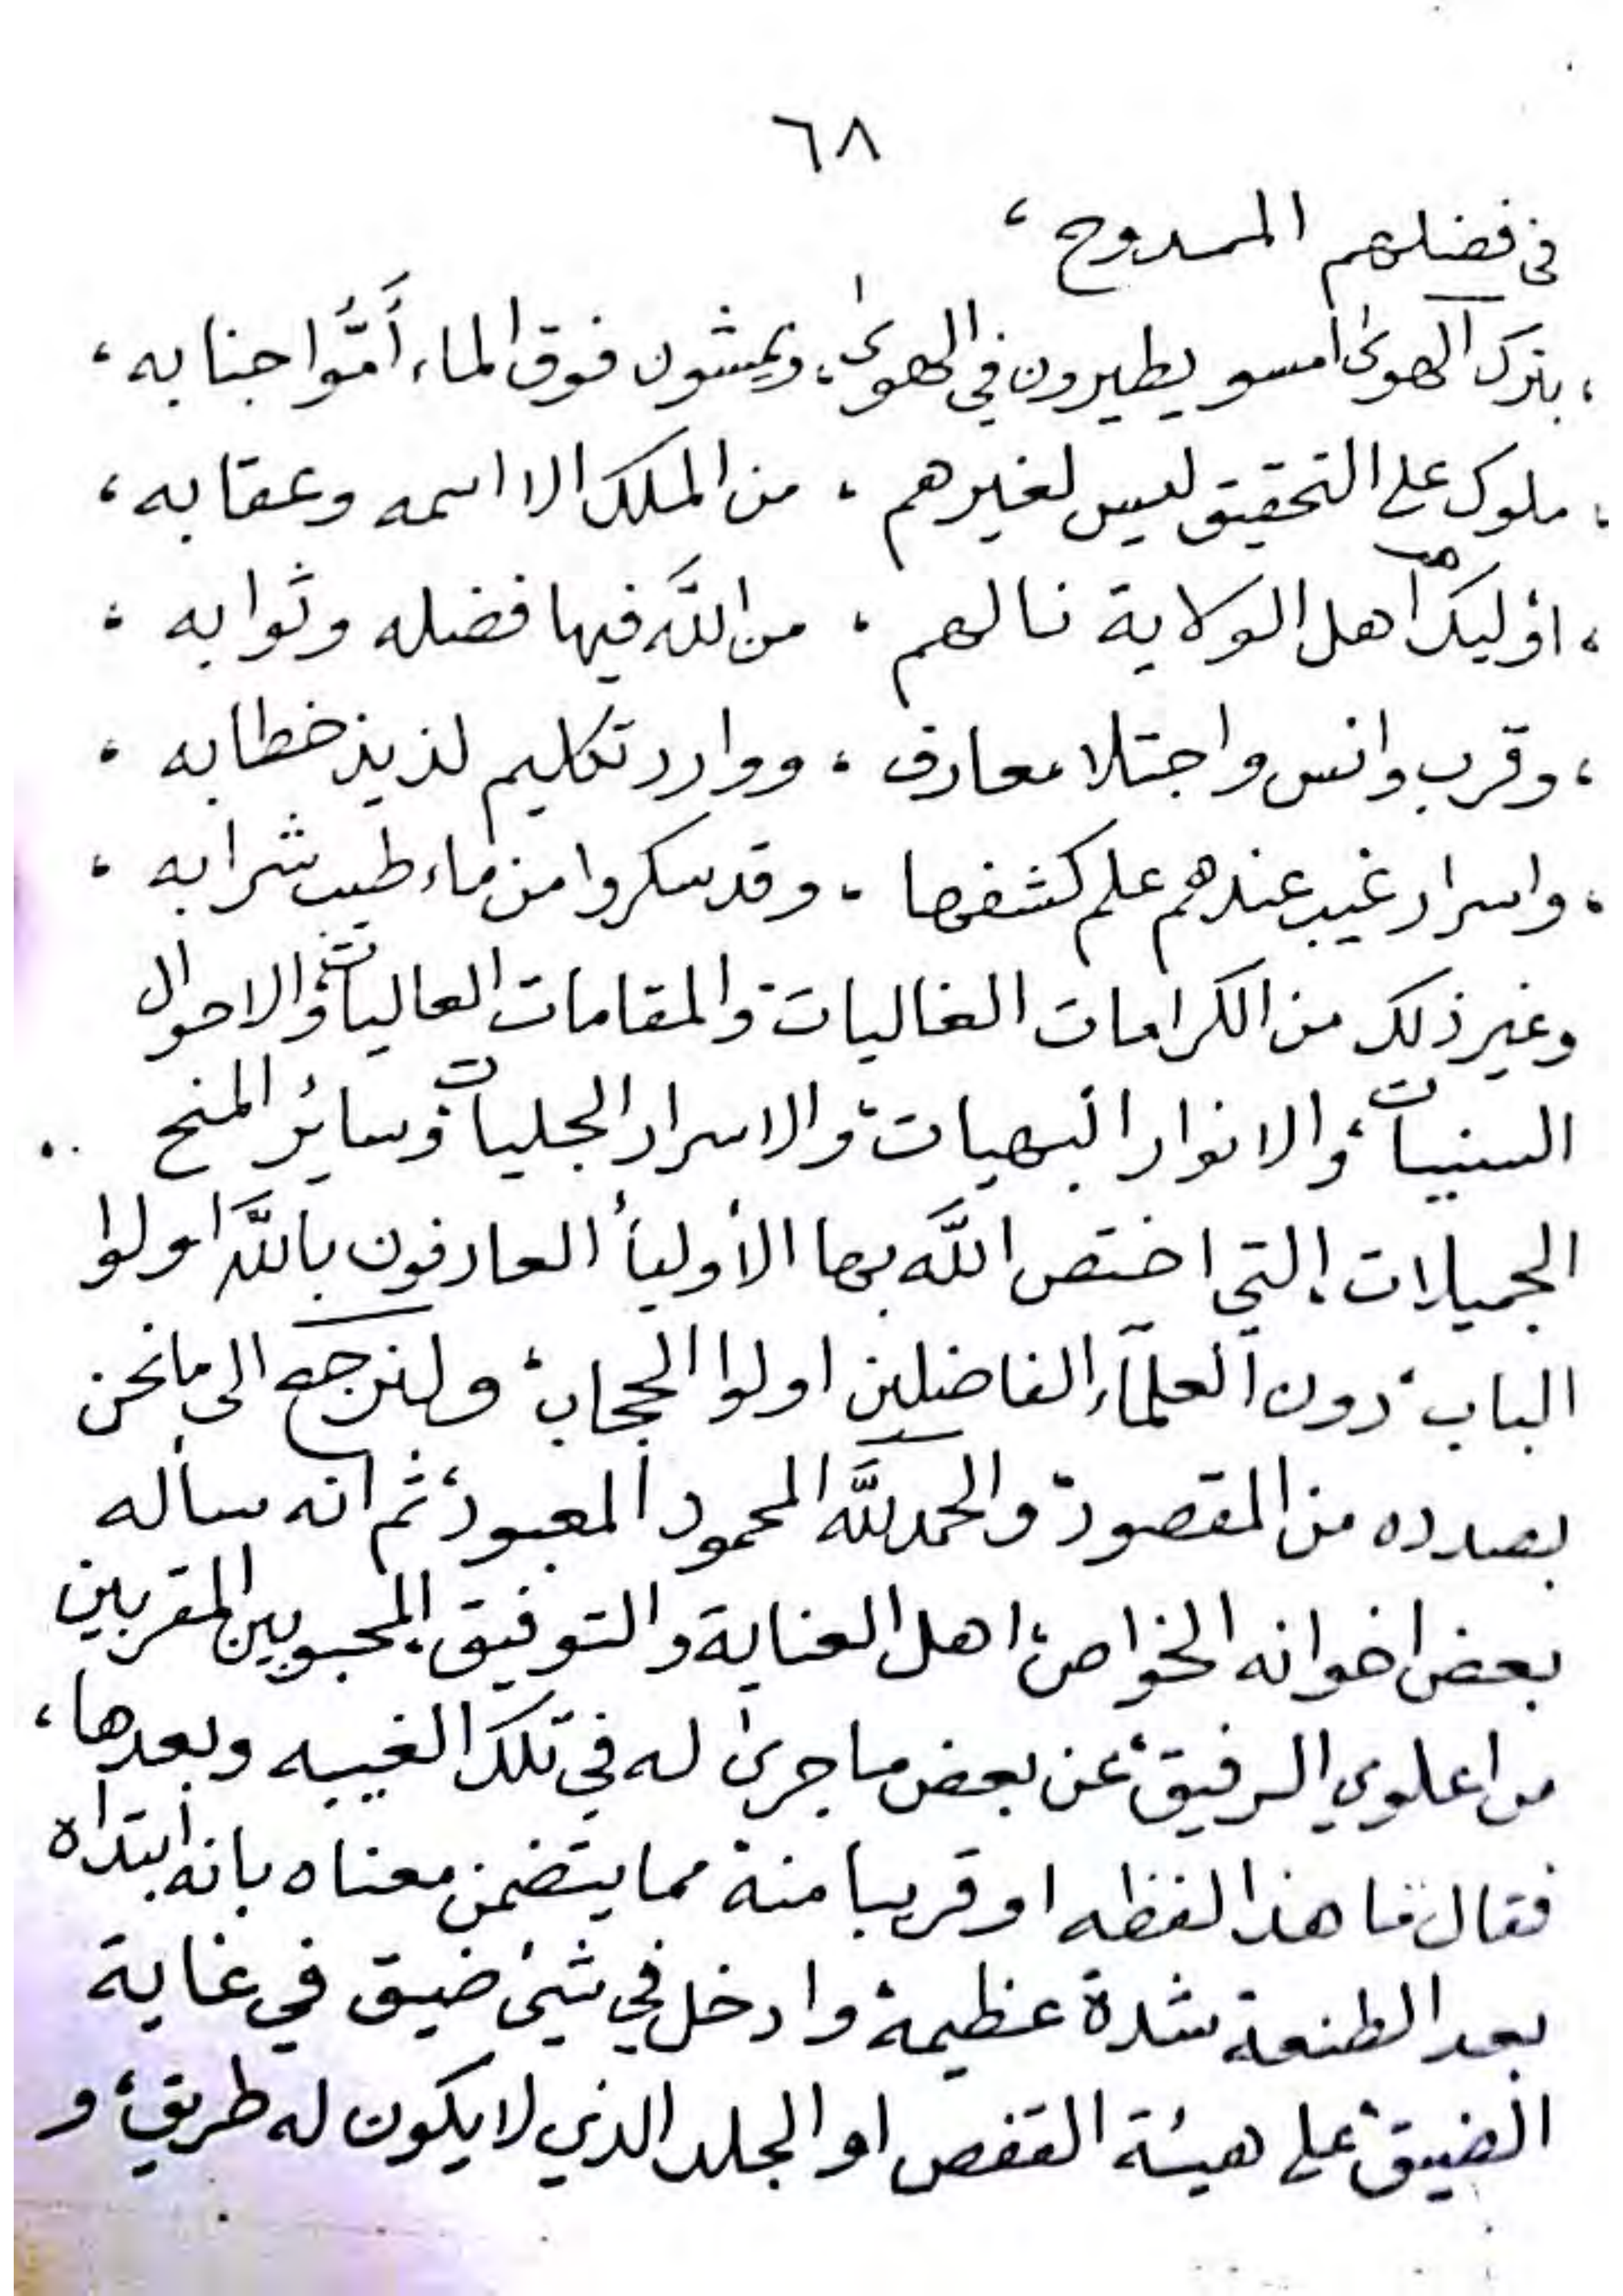 ٦٨
في فضلهم الممدوح ،
، بترك الهوى امسو يطيرون في الهوى ، ويمشون فوق الماء أمُّوا جنابه ،
، ملوك على التحقيق ليس لغيرهم ، من الملك الا اسمه وعقابه ،
، اؤليك اهل الولاية نالهم ، من اللَّه فيها فضله وثوابه ،
، وقرب وانس واجتلا معارف ، ووارد تكليم لذيذ خطابه ،
، واسرار غيب عندهم علم كشفها ، وقد سكروا من ماء طيب شرابه ،
وغير ذلك من الكرامات الغاليات، والمقامات العاليات، والاحوال
السنيات، والانوار البهيات، والاسرار الجليات، وسائر المنح
الجميلات، التي اختص اللَّه بها الأولياء العارفون باللَّه اولوا
الباب، دون العلمآء الفاضلين اولوا الحجاب، ولنرجع الى ما نحن
بصدده من المقصود، والحمد للَّه المحمود المعبود، ثم انه سأله
بعض اخوانه الخواص، اهل العناية والتوفيق، المحبوبين المقربين
من اعلوي الرفيق، عن بعض ما جرى له في تلك الغيبه وبعدها ،
فقال ما هذا لفظه او قريبا منة مما يتضمن معناه بانه ابتداه
بعد الطنعة شدة عظيمة، وادخل في شيئ ضيق في غاية
الضيق، على هيئة القفص او الجلد الذي لا يكون له طريق، و